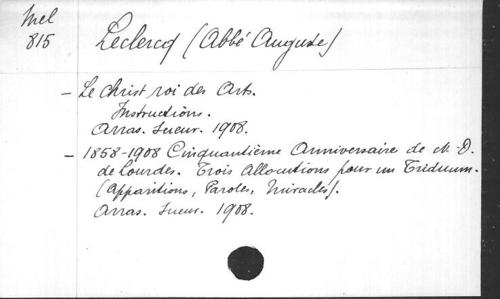 Mel
815
Leclercq (Abbé Auguste)
- Le Christ roi des Arts.
Instructions.
Arras. Sueur. 1908.
- 1858-1908 Cinquantième Anniversaire de N.-D.
de Lourdes. Trois Allocutions pour un Triduum.
(Apparitions, Paroles, Miracles).
Arras. Sueur. 1908.